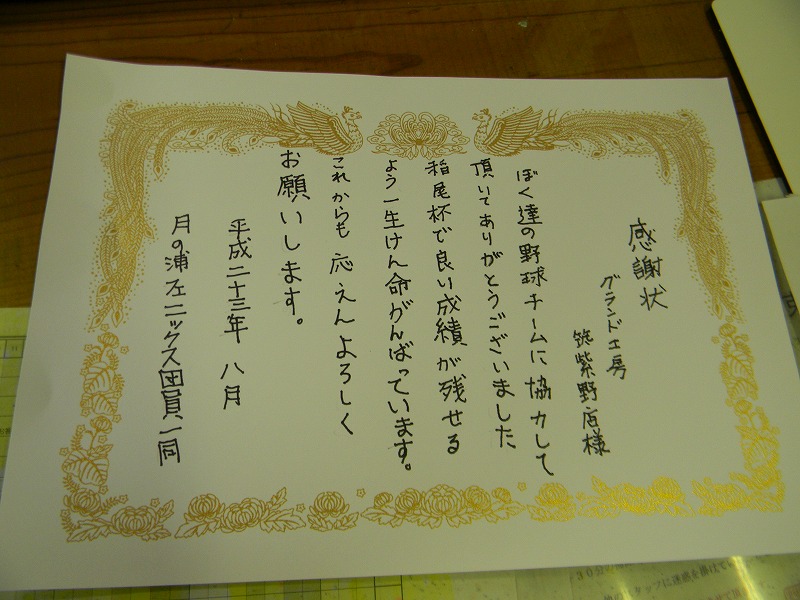 感謝状
グランド工房
筑紫野店様
ぼく達の野球チームに協力して
頂いてありがとうございました
稲尾杯で良い成績が残せる
よう一生けん命がんばっています。
これからも応えんよろしく
お願いします。
平成二十三年 八月
月の浦フェニックス団員一同